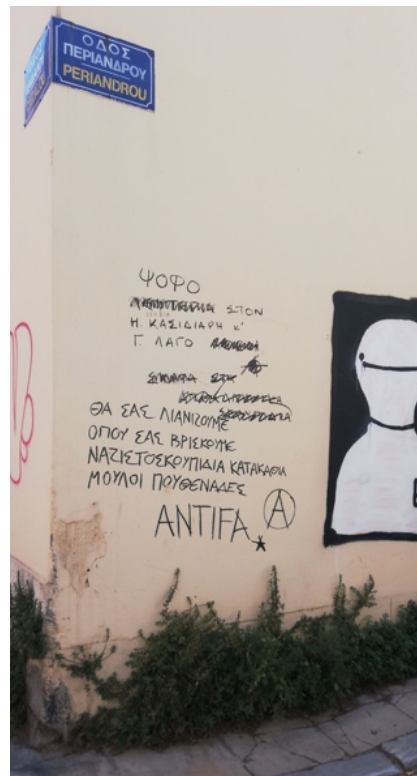 ΟΔΟΣ
ΠΕΡΙΑΝΔΡΟΥ
PERIANDROU
ΨΟΦΟ
ΣΤΟΝ
Η. ΚΑΣΙΔΙΑΡΗ Κ'
Γ. ΛΑΓΟ
ΘΑ ΣΑΣ ΛΙΑΝΙΖΟΥΜΕ
ΟΠΟΥ ΣΑΣ ΒΡΙΣΚΟΥΜΕ
ΝΑΖΙΣΤΟΣΚΟΥΠΙΔΙΑ ΚΑΤΑΚΑΘΙΑ
ΜΟΥΛΟΙ ΠΟΥΘΕΝΑΔΕΣ
ANTIFA